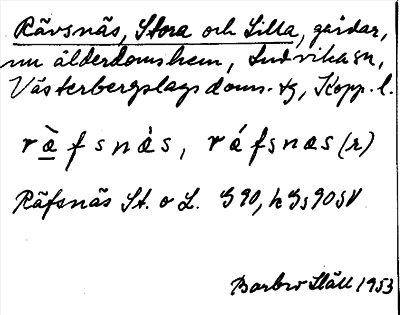 Rävsnäs, Stora och Lilla, gårdar,
nu ålderdomshem, Ludvika sn,
Västerbergslags doms. tg, Kopp. l.
r à̱ f s n à s, r á f s n a s (r)
Räfsnäs St. o L. G90, h Gs90SV
Barbro Ståll 1953